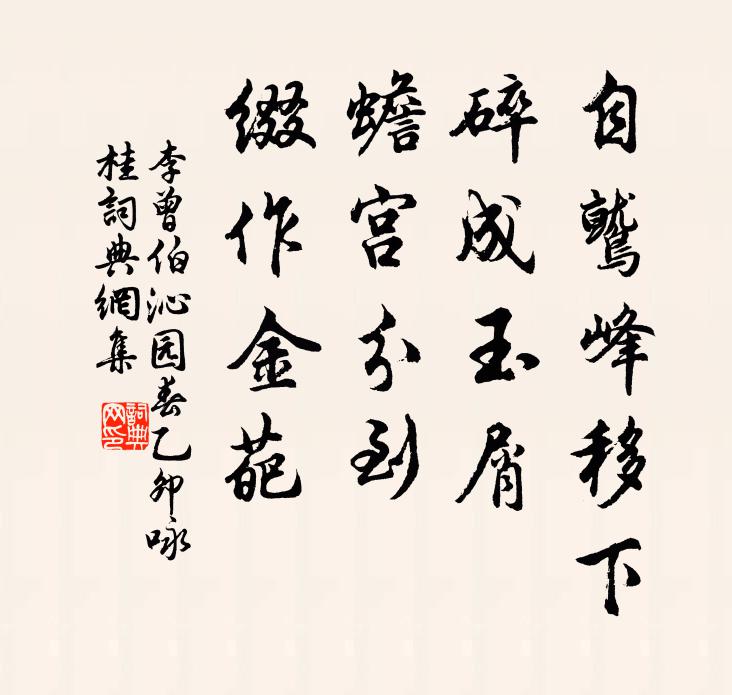 自鷲峰移下
碎成玉屑
蟾宫分到
缀作金葩
李曾伯沁园春乙卯咏
桂詞典網集
詞典网印